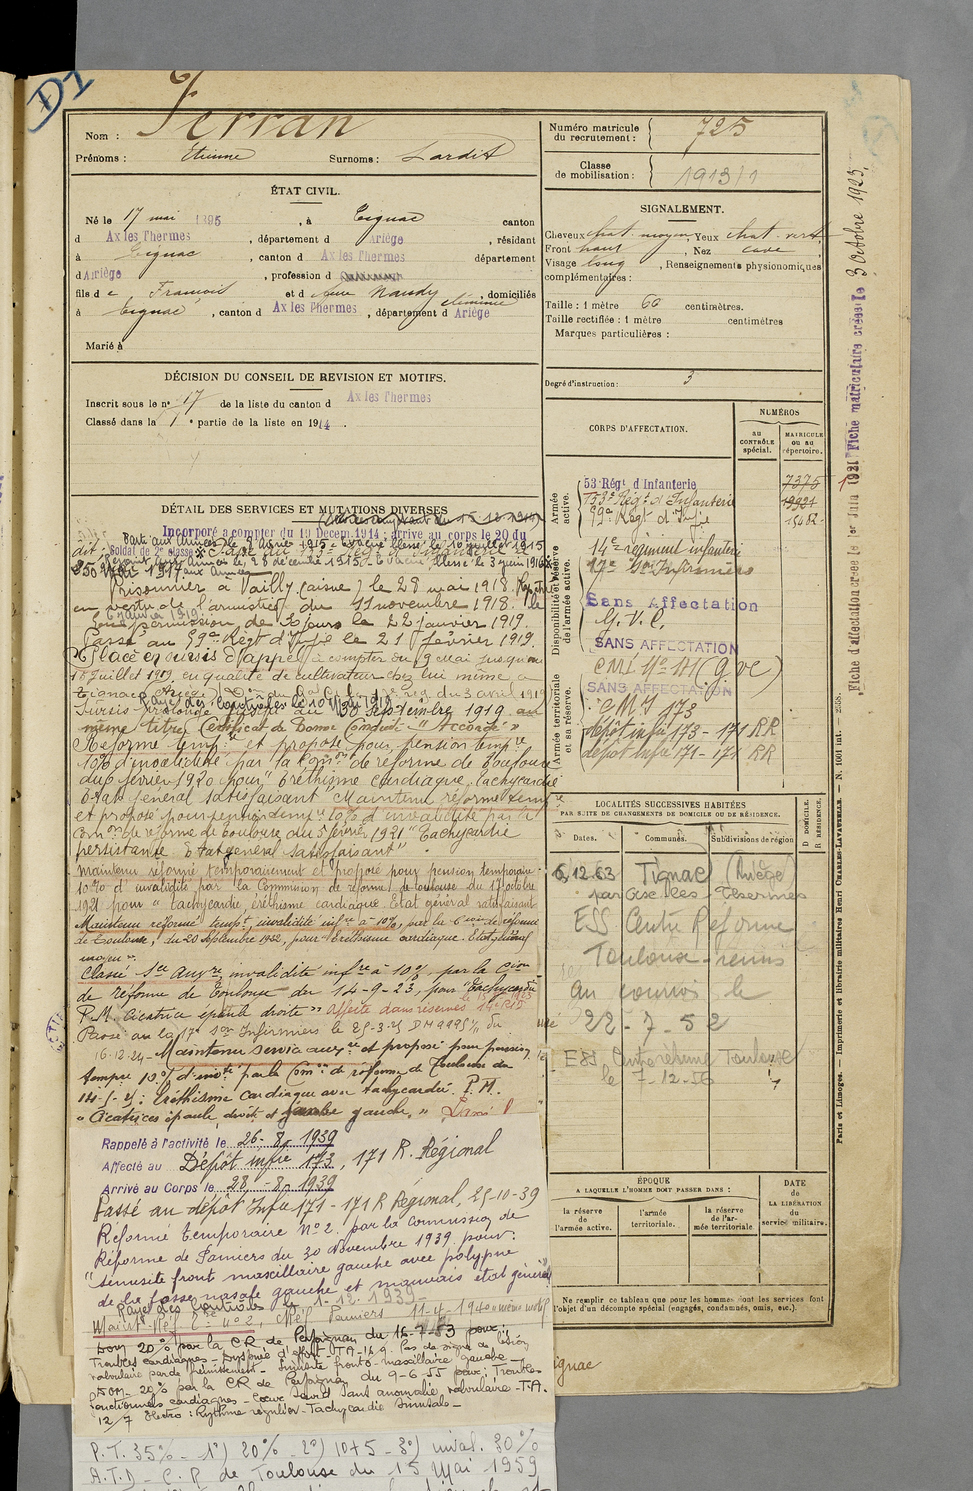 D1
Nom : Ferran
Prénoms : Etienne Surnoms : Lardit
ÉTAT CIVIL.
Né le 17 mai 1895, à Tignac canton
d Ax les Thermes, département d Ariège, résidant
à Tignac, canton d Ax les Thermes département
d Ariège, profession d
fils de François et d Anne Naudy, domiciliés
Clémence
à Tignac, canton d Ax les Thermes, département d Ariège
Marié à
DÉCISION DU CONSEIL DE REVISION ET MOTIFS.
Inscrit sous le n° 17 de la liste du canton d Ax les Thermes
Classé dans la 1e partie de la liste en 1914.
DÉTAIL DES SERVICES ET MUTATIONS DIVERSES
Incorporé à compter du 19 Decem. 1914 ; arrivé au corps le 20 du
dit, Soldat de 2e classe
Prisonnier à Vailly (aisne) le 28 mai 1918. Rapatrié
en vertu de l'armistice du 11 novembre 1918. le
6 janvier 1919.
permission de jours le 22 janvier 1919.
Passé au 59e Régt d'Infie le 21 février 1919.
Placé en sursis d'appel à compter du 9 mai jusqu'au
15 juillet 1919, en qualité de cultivateur chez lui même à
Tignac (Ariège) du 3 avril 1919
Rayé des contrôles le 10
Sursis 30 septembre 1919 au
même titre Certificat de Bonne Conduite "Accordé"
Réformé tempre et proposé pour pension tempre
10% d'invalidité par la Comon de réforme de Toulouse
du 6 février 1920 pour "éréthisme cardiaque, tachycardie
Etat général satisfaisant" Maintenu réformé tempre
et proposé pour pension tempre 10% d'invalidité par la
Comon de réforme de Toulouse du 5 février 1921 "Tachycardie
persistante Etat général satisfaisant".
Maintenu réformé temporairement et proposé pour pension temporaire
10% d'invalidité par la Commission de réforme de Toulouse du 17 octobre
1921 pour "tachycardie, éréthisme cardiaque. Etat général satisfaisant
Maintenu réformé tempt, invalidité infre à 10%, par la Cion de réforme
de Toulouse, du 20 septembre 1922, pour "Eréthisme cardiaque. Etat général
moyen".
Classé sce auxre invalidité infre à 10% par la Cion
de réforme de Toulouse du 14-9-23, pour "Tachycardie
P.M. Cicatrice épaule droite" Affecté dans réserves 14e RI
Passé au la 17e Son Infirmiers le 25-3-25 DM 9995 1/7 du
16-12-24 - Maintenu service auxre et proposé pour pension
tempre 10% d'invté par la Comon de réforme de Toulouse du
"Eréthisme cardiaque avec tachycardie. P.M.
"Cicatrices épaule droite et jambe gauche"
Rappelé à l'activité le 26-8- 1939
Affecté au Dépôt infie 173, 171 R. Régional
Arrivé au Corps le 28-8- 1939
Passé au dépôt Infie 171 - 171 R Régional, 25-10-39
Réformé temporaire N° 2, par la commission de
Réforme de Pamiers du 30 novembre 1939 pour:
"sinusite fronto maxillaire gauche avec polype
de la fosse nasale gauche et mauvais état général"
Rayé des Contrôles le 1-12-1939
Maint. Réf. Tre n° 2, Cion Réf Pamiers 11-4-1940 même motif
20% par la CR de Perpignan du 16-7-53 pour:
Troubles cardiaques - Dyspnée d'effort - TA - 14.9 - Pas de signe de lésion
valvulaire pas de frémissement - Sinusite fronto-maxillaire gauche -
20% par la CR de Perpignan du 9-6-55 pour: Troubles
fonctionnels cardiaques - Coeur sans anomalie valvulaire - T.A.
12/7 Electro : Rythme régulier - Tachycardie Sinusale -
P.T. 35% - 1°) 20% - 2°) 10+5 - 3°) inval. 30%
A.T.D - C.R de Toulouse du 15 Mai 1959
Numéro matricule du recrutement : 725
Classe de mobilisation : 1913/1
SIGNALEMENT.
Cheveux chat. moyen, Yeux chat. vert
Front haut, Nez cave
Visage long, Renseignements physionomiques
complémentaires :
Taille : 1 mètre 66 centimètres.
Taille rectifiée : 1 mètre centimètres
Marques particulières :
Degré d'instruction : 3
CORPS D'AFFECTATION.
NUMÉROS
au CONTRÔLE spécial.
MATRICULE ou au répertoire.
Armée active.
53 Régt d'Infanterie 7375
153e Régt d'Infanterie 19921
59e Régt d'Infie 15482
Disponibilité et réserve de l'armée active.
14e régiment infanterie
17e Son Infirmiers
Sans Affectation
G.V.C.
SANS AFFECTATION
Armée territoriale et sa réserve.
CMI N° 171 (gvc)
SANS AFFECTATION
CMI 173
dépôt infie 173 - 171 RR
dépôt infie 171 - 171 RR
LOCALITÉS SUCCESSIVES HABITÉES
PAR SUITE DE CHANGEMENTS DE DOMICILE OU DE RÉSIDENCE.
Dates. Communes. Subdivisions de région D DOMICILE. R RÉSIDENCE.
6.12.63 Tignac (Ariège)
par Ax les Thermes
ESS Centre Réforme
Toulouse - remis
au courrois le
22-7-52
ESS Centre réforme Toulouse
le 7-12-56
ÉPOQUE
A LAQUELLE L'HOMME DOIT PASSER DANS :
la réserve de l'armée active.
l'armée territoriale.
la réserve de l'armée territoriale
DATE de LA LIBÉRATION du service militaire.
Ne remplir ce tableau que pour les hommes dont les services font
l'objet d'un décompte spécial (engagés, condamnés, omis, etc.).
Fiche d'affectation créée le 1er Juin 1921 Fiche matriculaire créée le 3 Octobre 1923
Paris et Limoges. — Imprimerie et librairie militaires Henri CHARLES-LAVAUZELLE. — N. 1001 int. — 258.
ignac